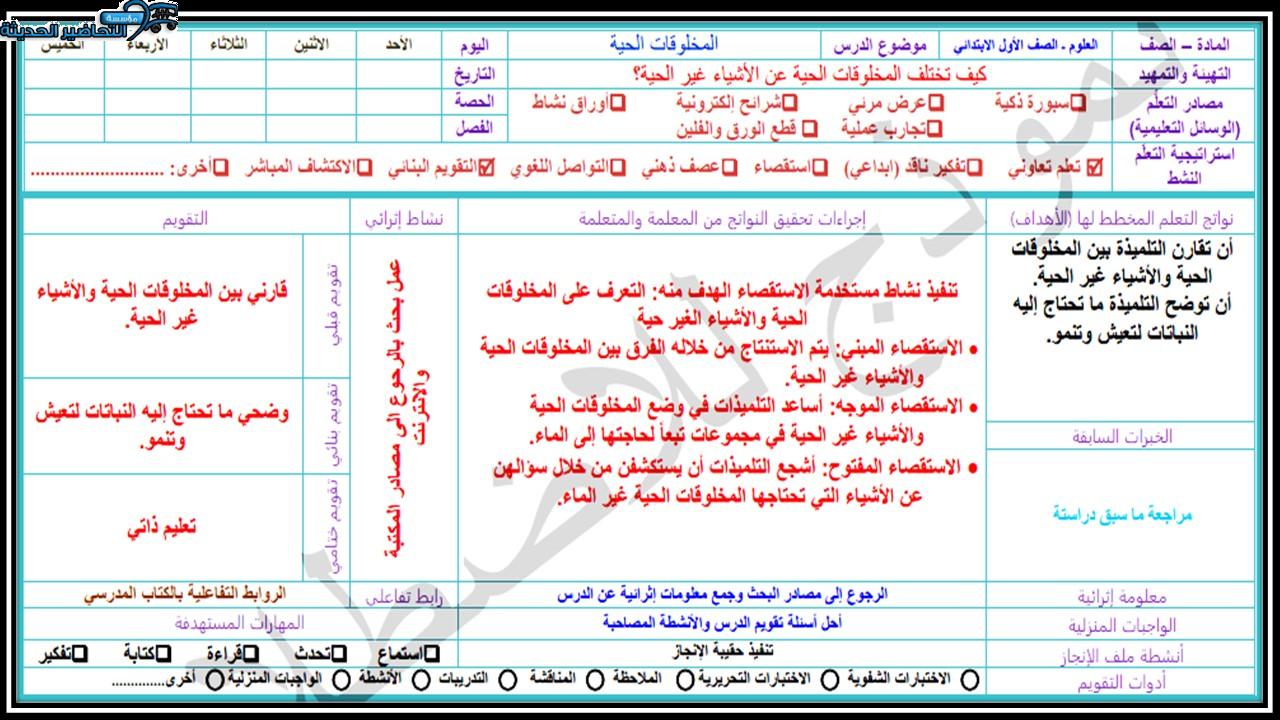 مؤسسة
التحاضير الحديثة
المادة – الصف
العلوم - الصف الأول الابتدائي
موضوع الدرس
المخلوقات الحية
اليوم
الأحد
الاثنين
الثلاثاء
الأربعاء
الخميس
التهيئة والتمهيد
كيف تختلف المخلوقات الحية عن الأشياء غير الحية؟
التاريخ
مصادر التعلم
(الوسائل التعليمية)
سبورة ذكية
عرض مرئي
شرائح إلكترونية
أوراق نشاط
تجارب عملية
قطع الورق والفلين
الحصة
الفصل
استراتيجية التعلم
النشط
تعلم تعاوني
تفكير ناقد (ابداعي)
استقصاء
عصف ذهني
التواصل اللغوي
التقويم البنائي
الاكتشاف المباشر
أخرى: ..........................
نواتج التعلم المخطط لها (الأهداف)
إجراءات تحقيق النواتج من المعلمة والمتعلمة
نشاط إثرائي
التقويم
أن تقارن التلميذة بين المخلوقات
الحية والأشياء غير الحية.
أن توضح التلميذة ما تحتاج إليه
النباتات لتعيش وتنمو.
الخبرات السابقة
مراجعة ما سبق دراستة
تنفيذ نشاط مستخدمة الاستقصاء الهدف منه: التعرف على المخلوقات
الحية والأشياء الغير حية
• الاستقصاء المبني: يتم الاستنتاج من خلاله الفرق بين المخلوقات الحية
والأشياء غير الحية.
• الاستقصاء الموجه: أساعد التلميذات في وضع المخلوقات الحية
والأشياء غير الحية في مجموعات تبعاً لحاجتها إلى الماء.
• الاستقصاء المفتوح: أشجع التلميذات أن يستكشفن من خلال سؤالهن
عن الأشياء التي تحتاجها المخلوقات الحية غير الماء.
عمل بحث بالرجوع الى مصادر المكتبة
والانترنت
تقويم قبلي
قارني بين المخلوقات الحية والأشياء
غير الحية.
تقويم بنائي
وضحي ما تحتاج إليه النباتات لتعيش
وتنمو.
تقويم ختامي
تعليم ذاتي
معلومة إثرائية
الرجوع إلى مصادر البحث وجمع معلومات إثرائية عن الدرس
رابط تفاعلي
الروابط التفاعلية بالكتاب المدرسي
الواجبات المنزلية
أحل أسئلة تقويم الدرس والأنشطة المصاحبة
المهارات المستهدفة
أنشطة ملف الإنجاز
تنفيذ حقيبة الإنجاز
استماع
تحدث
قراءة
كتابة
تفكير
أدوات التقويم
الاختبارات الشفوية
الاختبارات التحريرية
الملاحظة
المناقشة
التدريبات
الأنشطة
الواجبات المنزلية
أخرى..............
نموذج للاضطلاع